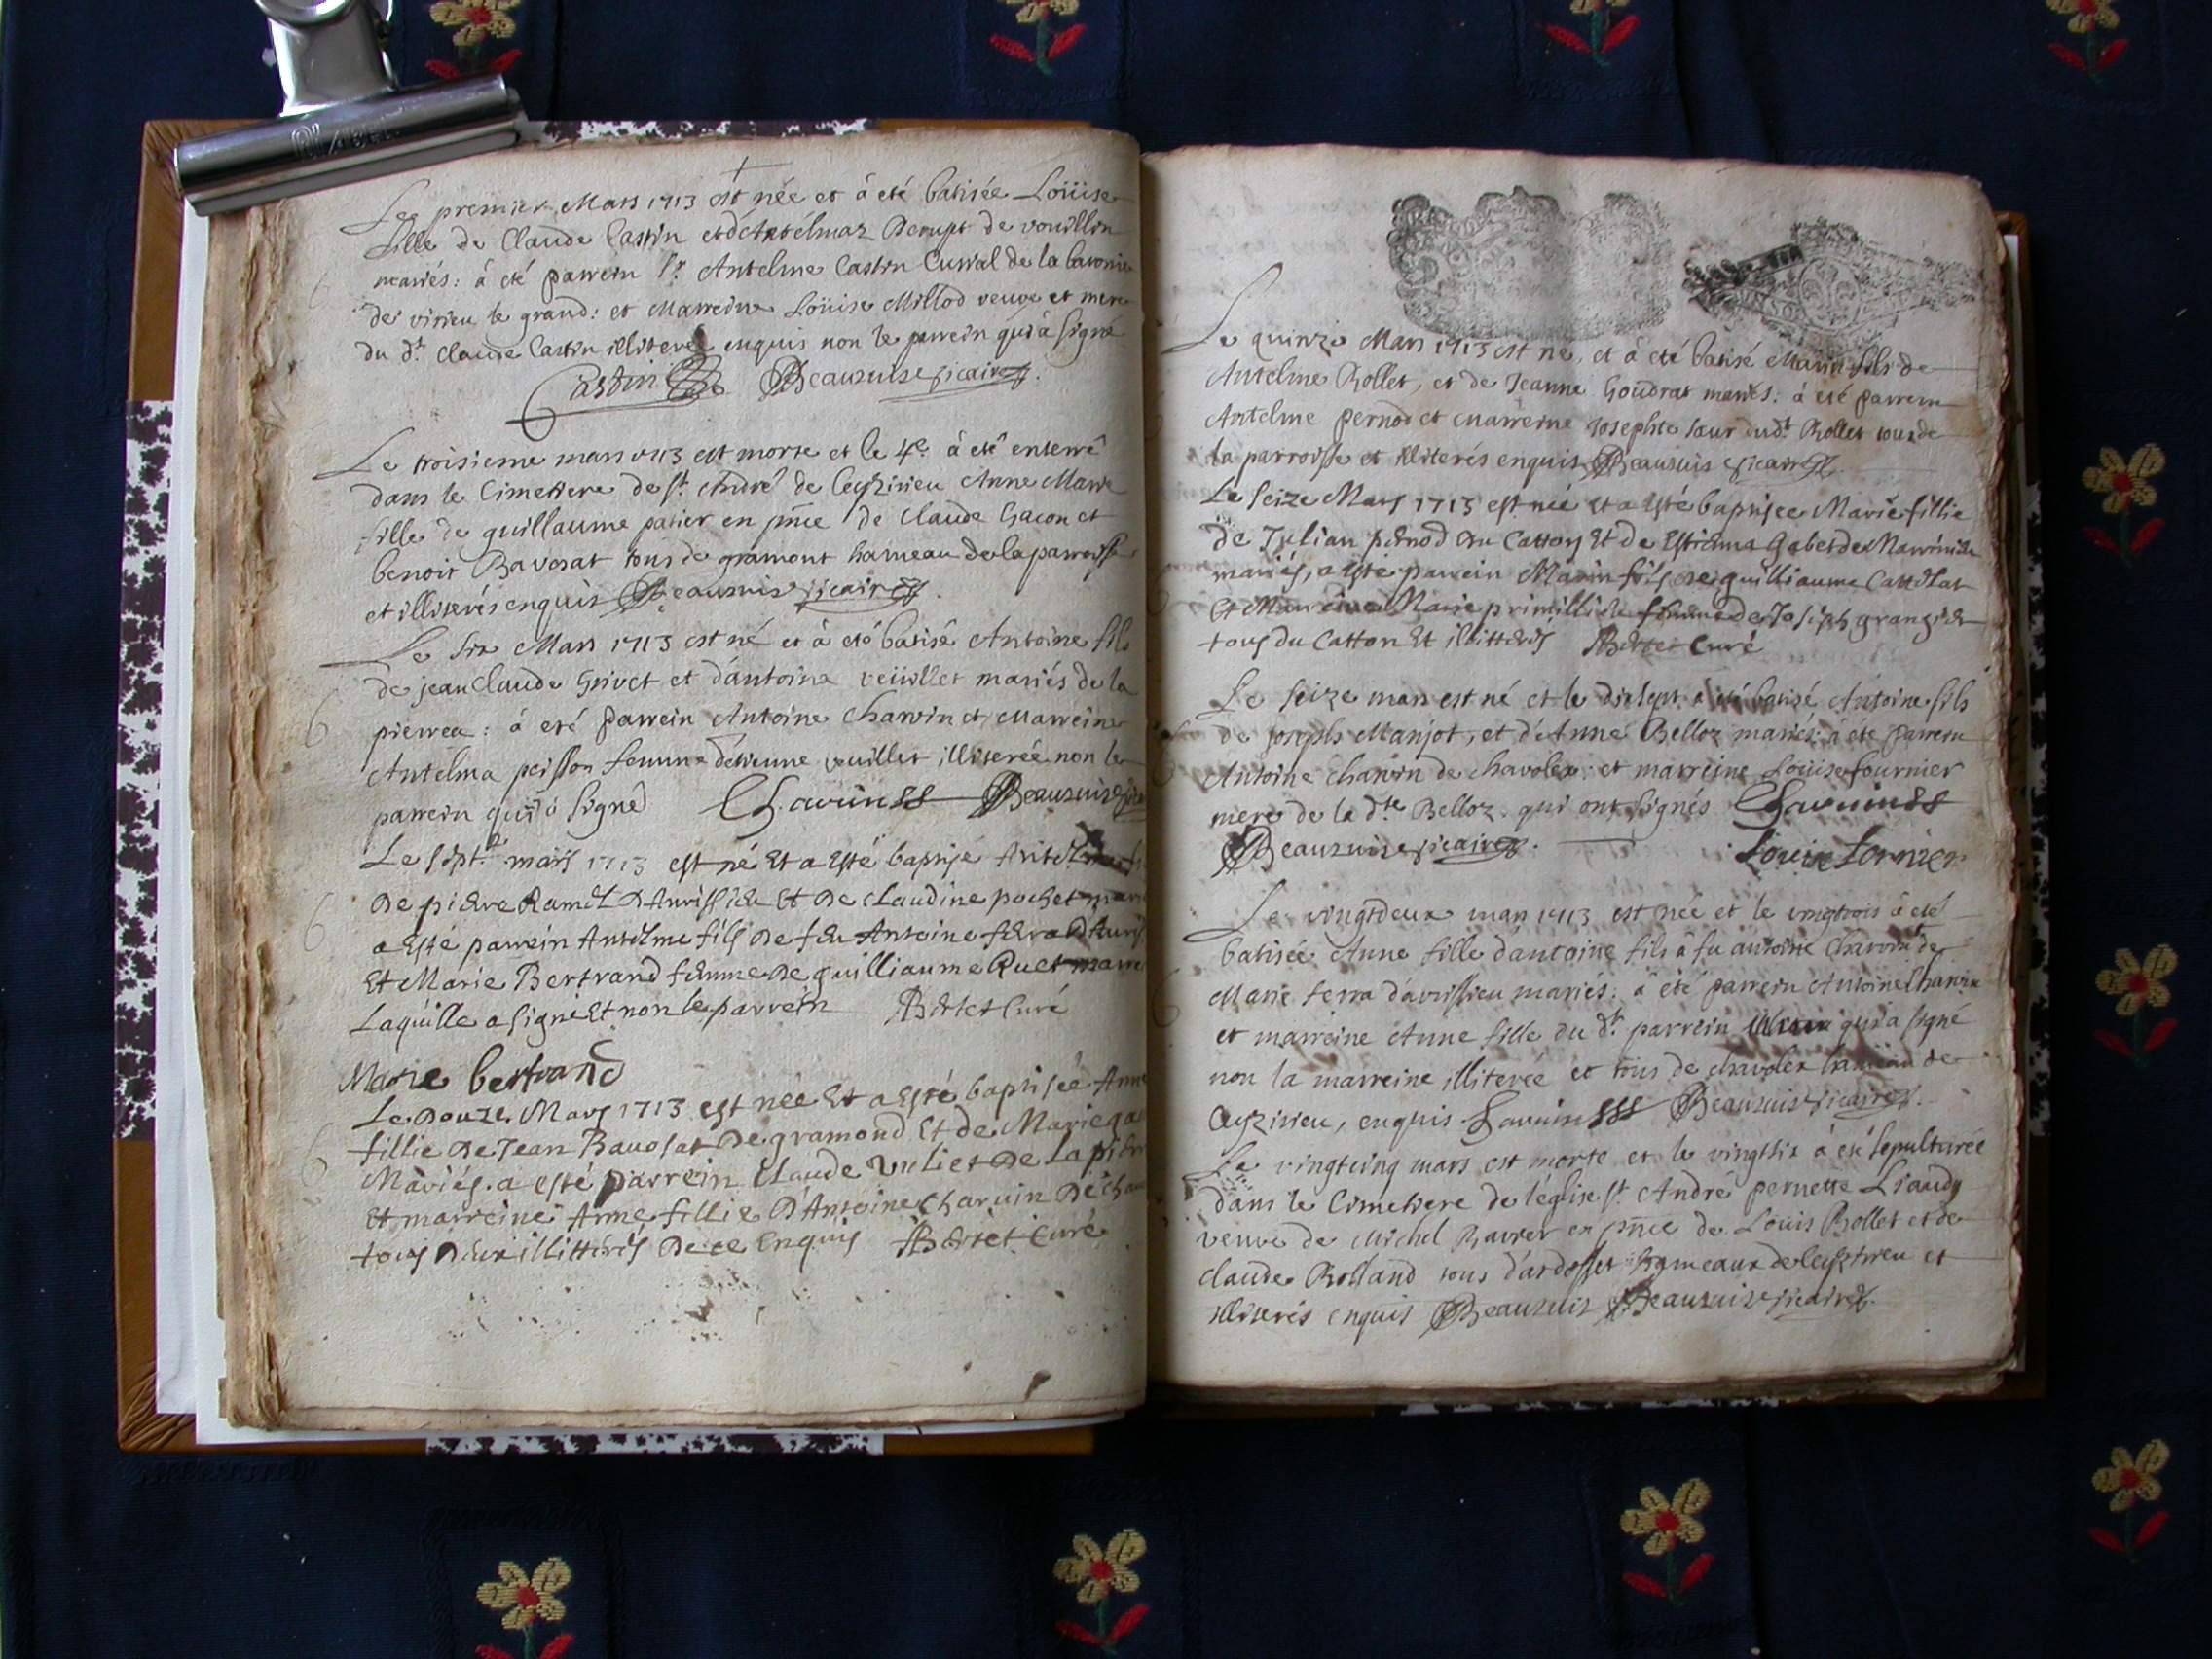 Le premier Mars 1713 est née et à eté batisée Loüise
fille de Claude Castin et d'Antélmaz de vouillon
mariés: à eté parrein Sr. Antelme Castin Curial de la baronie
de virieu le grand: et Marreine Loüise Millod veuve et mere
du dt. Claude Castin illiterée enquis non le parrein qui à signé
Castin Beauzuise vicaire.
Le troisieme mars 1713 est morte et le 4e. à eté enterré
dans le Cimettere de st. André de Ceyzirieu Anne Marie
fille de guillaume patier en pnce de Claude Gacon et
benoit Bavozat tous de gramont hameau de la parroisse
et illiterés enquis Beauzuis vicaire.
Le Six Mars 1713 est né et à eté batisé Antoine fils
de jean Claude Grivet et d'antoina veüillet mariés de la
pierrea: à eté parrein Antoine Charvin et Marreine
Antelma peisson femme d'etienne veuillet illiterée non le
parrein qui à signé Charuin SS Beauzuise
Le sept mars 1713 est né Et a Esté baptisé
De piERe Ramel D'Aurissieu Et De claudine pochet
a Esté parrein AntElme fils De fEu Antoine fERa
Et Marie Bertrand fEmme De guilliaume Ruet
Laquille a signé Et non le parrein Bertet Curé
Marie bertrand
Le Douze Mars 1713 est née Et a Esté baptisée Anne
fillie De Jean Bauosat De gramond Et de Marie
Mariés. a esté parrein Claude Vuliet De La
Et marreine Anne fillie D'Antoine Charuin De
tous Deux illittérés De ce Enquis Bertet Curé
Le quinze Mars 1713 est né, et à eté batisé Marin fils de
Antelme Rollet, et de Jeanne Goudrat mariés: à eté parrein
Antelme pernod et marreine Josephte sœur dudt. Rollet tous de
la parroisse et illiterés enquis Beauzuis vicaire.
Le seize Mars 1713 est née Et a Esté baptisee Marie fillie
de Julian pErnod Du Catton Et de Estienna
mariés, a Esté parrein Marin fils de guilliaume
Et Marreine Marie femme de Joseph grangier
tous du Catton Et illittErés Bertet Curé
Le seize mars est né et le dixsept à eté batisé Antoine fils
de joseph Manjot, et d'Anne Belloz mariés: à eté parrein
Antoine charvin de chavolex: et marreine Loüise fournier
mere de la dte. Belloz qui ont signés Charuin SS
Beauzuise vicaire. Louise fornier
Le vingtdeux mars 1713 est née et le vingtrois à eté
batisée Anne fille d'antoine fils à fu antoine Charvin de
Marie ferra d'avrissieu mariés: à été parrein Antoine Charvin
et marreine Anne fille du dt. parrein qui a signé
non la marreine illiterée et tous de chavolex hameau de
Ceyzirieu, enquis Charuin SSS Beauzuise vicaire.
Le vingtcinq mars est morte et le vingtsix à eté sepulturée
dans le Cimetiere de l'église st. André pernette Liaudy
veuve de Michel Ravier en pnce de Loüis Rollet et de
claude Rolland tous d'ardosset hameaux de Ceyzirieu et
illiterés enquis Beauzuis Beauzuise vicaire.